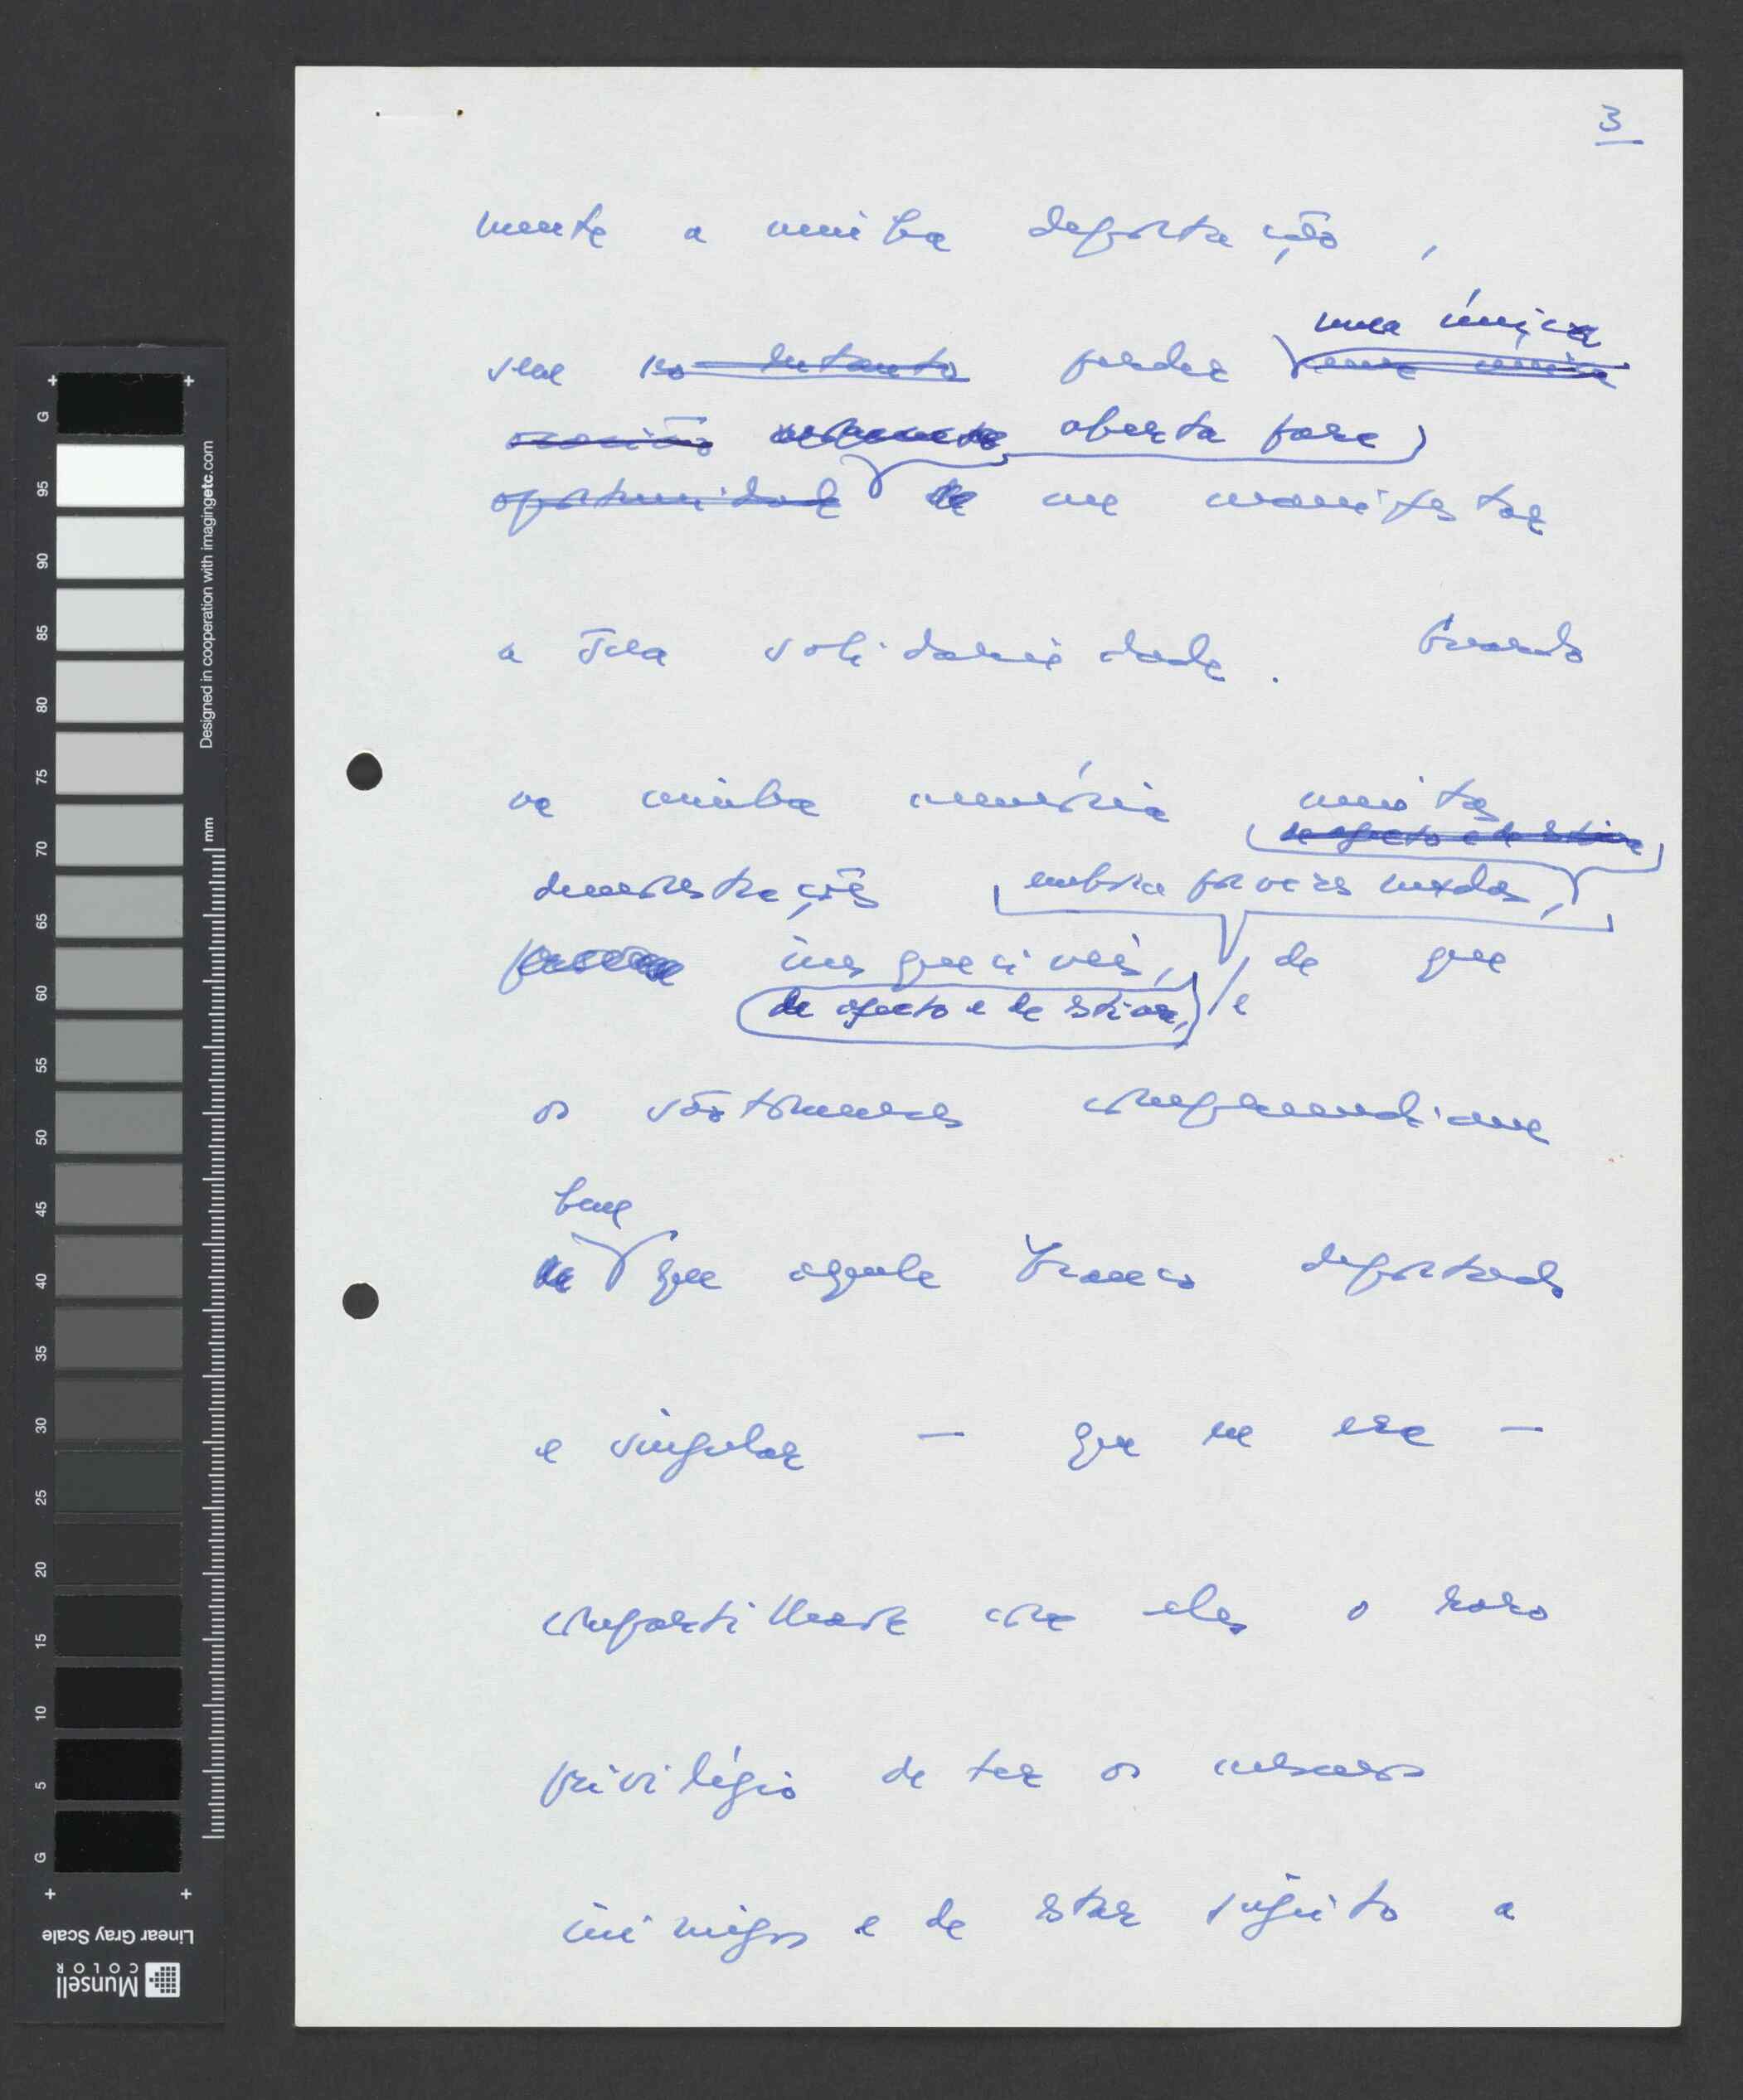 3
mente a minha deportação,
uma única
sem no entanto perder uma única
ocasião aberta para
oportunidade de me manifestar
a sua solidariedade. Guardo
na minha memória muitas
de afecto e de estima
demonstrações embora por vezes mudas,
inesquecíveis, de que
de afecto e de estima, e
os sãotomenses compreendiam
bem
que aquele branco deportado
e singular — que eu era —
compartilhava com eles o raro
privilégio de ter os mesmos
inimigos e de estar sujeito a
G 95 90 85 80 75 70 65 60 55 50 45 40 35 30 25 20 15 10 5 G
mm
Designed in cooperation with imagingetc.com
Munsell
COLOR
Linear Gray Scale